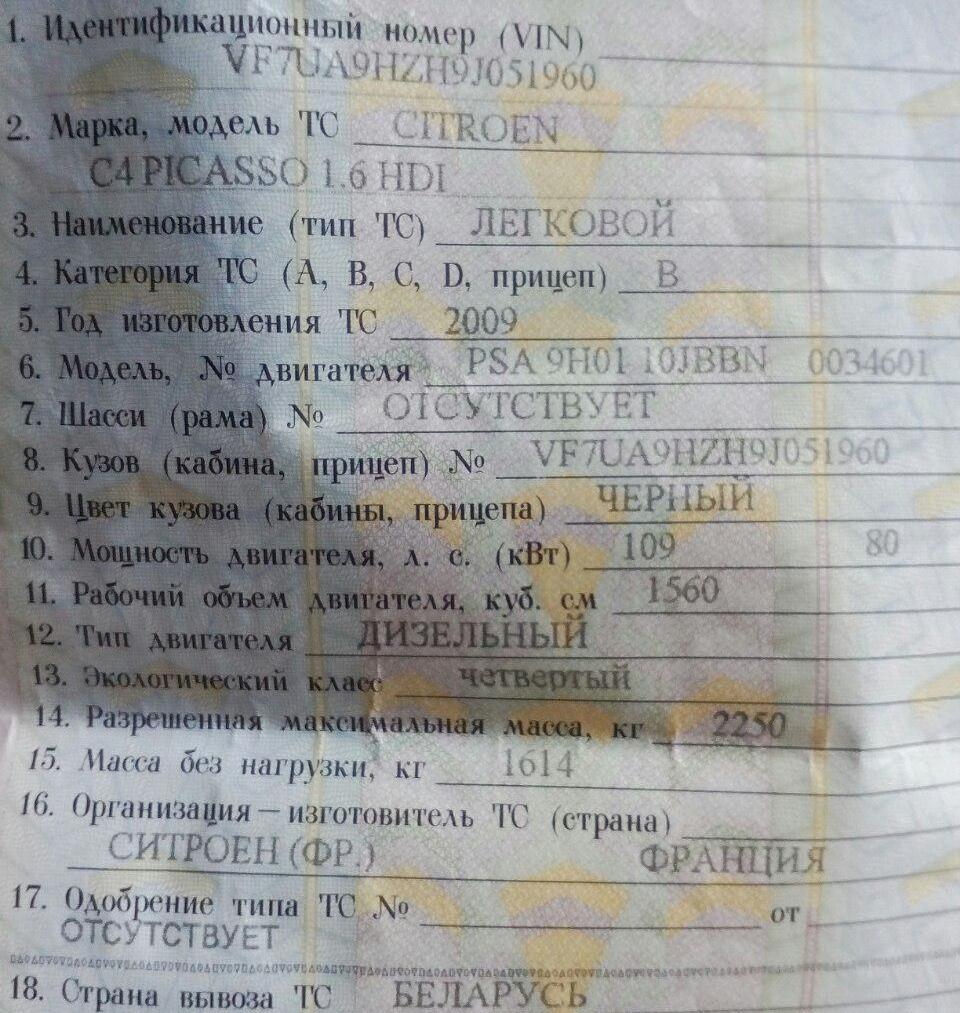 1. Идентификационный номер (VIN)
VF7UA9HZH9J051960
2. Марка, модель ТС CITROEN
C4 PICASSO 1.6 HDI
3. Наименование (тип ТС) ЛЕГКОВОЙ
4. Категория ТС (А, В, С, D, прицеп) В
5. Год изготовления ТС 2009
6. Модель, № двигателя PSA 9H01 10JBBN 0034601
7. Шасси (рама) № ОТСУТСТВУЕТ
8. Кузов (кабина, прицеп) № VF7UA9HZH9J051960
9. Цвет кузова (кабины, прицепа) ЧЕРНЫЙ
10. Мощность двигателя, л. с. (кВт) 109 80
11. Рабочий объем двигателя, куб. см 1560
12. Тип двигателя ДИЗЕЛЬНЫЙ
13. Экологический класс четвертый
14. Разрешенная максимальная масса, кг 2250
15. Масса без нагрузки, кг 1614
16. Организация – изготовитель ТС (страна)
СИТРОЕН (ФР.) ФРАНЦИЯ
17. Одобрение типа ТС № от
ОТСУТСТВУЕТ
18. Страна вывоза ТС БЕЛАРУСЬ